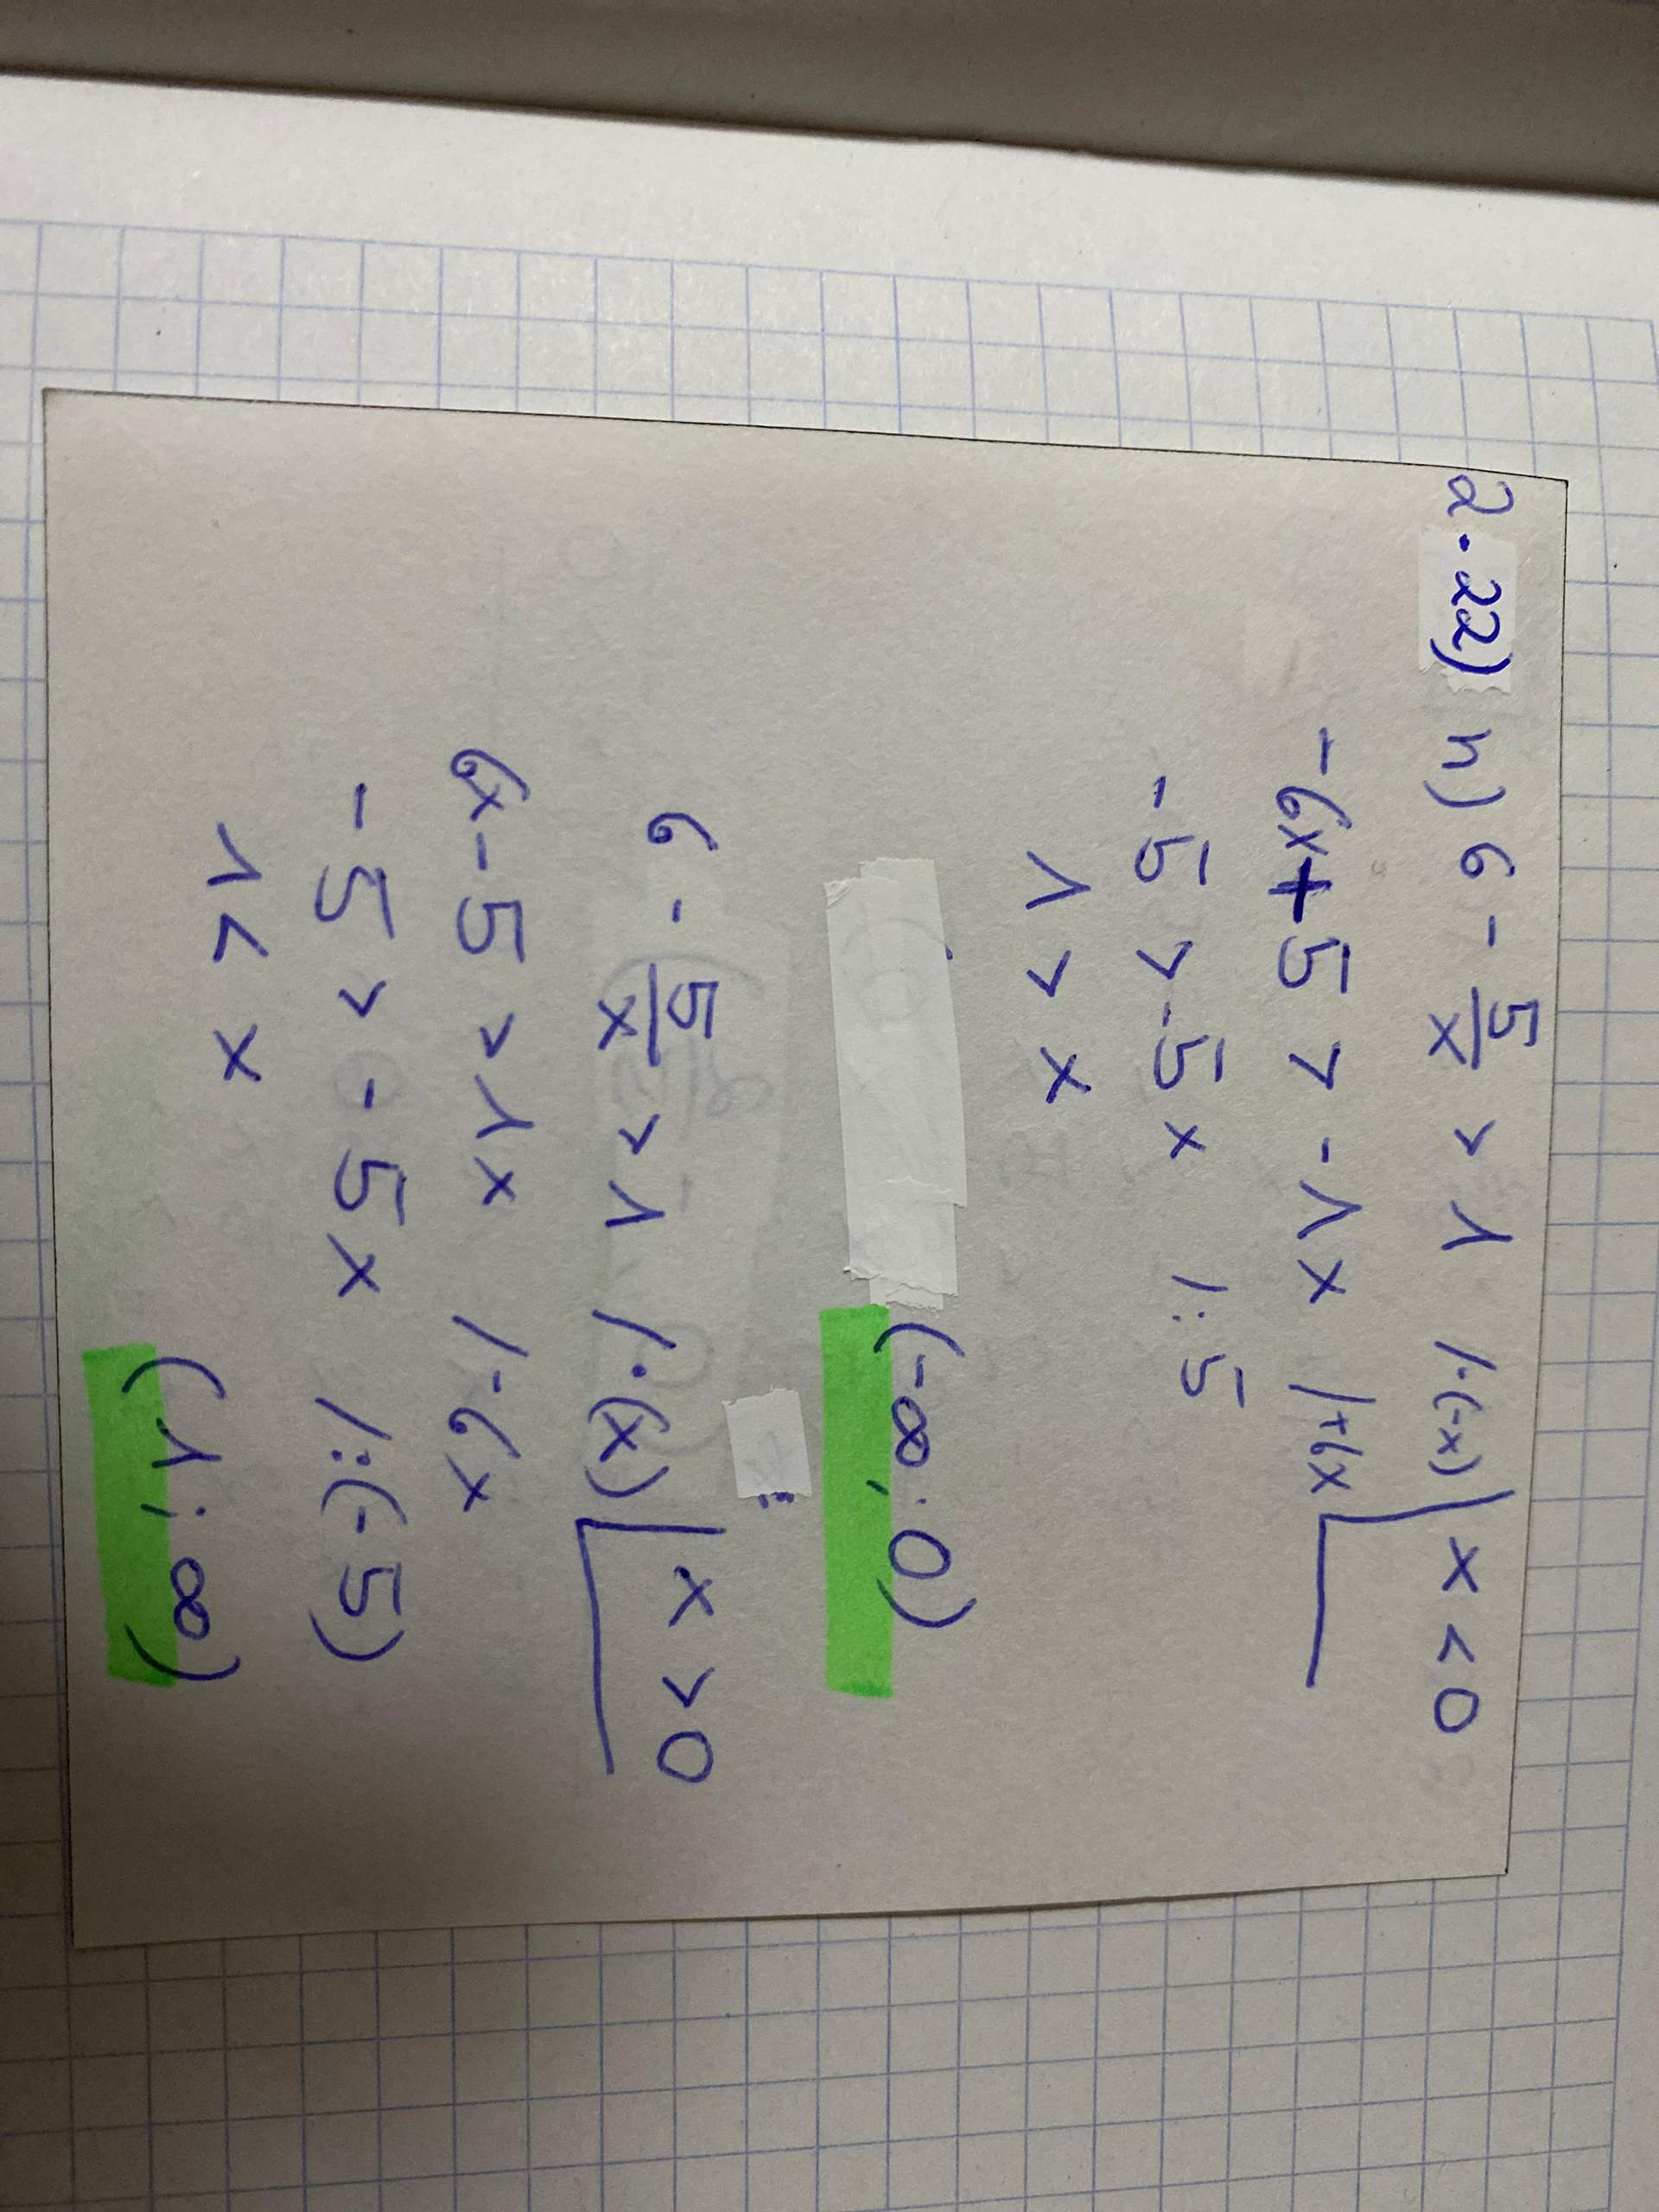 2.22) h) 6 - 5/x > 1 /·(-x) x < 0
-6x + 5 > -1x /+6x
-5 > -5x /:5
1 > x
(-∞; 0)
6 - 5/x > 1 /·(x) x > 0
6x - 5 > 1x /-6x
-5 > -5x /:(-5)
1 < x
(1; ∞)